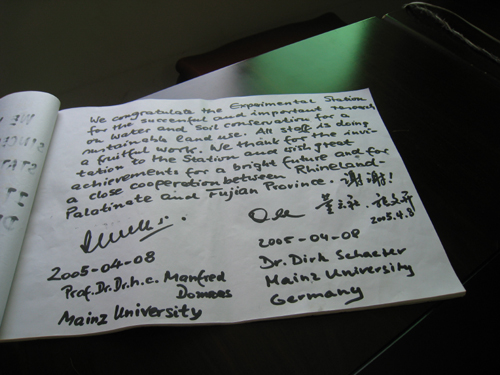 We congratulate the Experimental Station
for the successful and important research
on Water and Soil conservation for a
sustainable land use. All staff is doing
a fruitful work. We thank for the invi-
tation to the Station and wish great
achievements for a bright future and for
a close cooperation between Rhineland-
Palatinate and Fujian Province. 谢谢!
2005.4.8
2005-04-08
Prof. Dr. Dr. h.c. Manfred
Domroes
Mainz University
2005-04-08
Dr. Dirk Schaefer
Mainz University
Germany